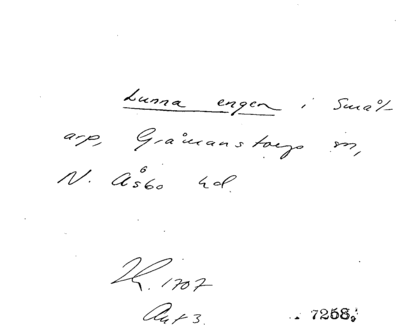 Lunna engen i Smål-
arp, Gråmanstorps sn,
N. Åsbo hd.
1707
Akt 3.
7258.